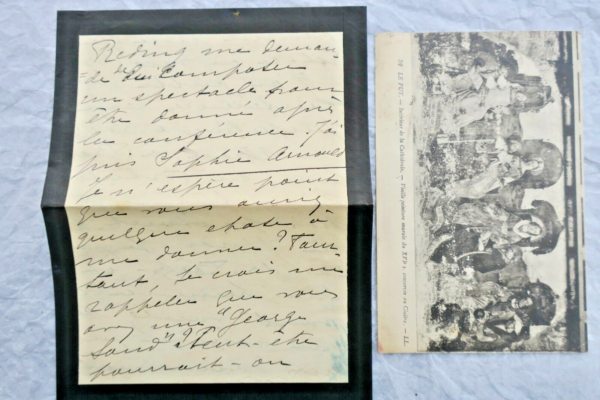 Reding me deman-
de de lui Composer
un spectacle pour
être donné après
la conférence. J'ai
pris Sophie Arnould
Je n'espère point
que vous auriez
quelque chose à
me donner? Pour-
tant, Je crois me
rappeler que vous
avez une "George
Sand"? Peut-être
pourrait-on
LE PUY. — Intérieur de la Cathédrale. — Vieille peinture murale du XVe s. — LL.